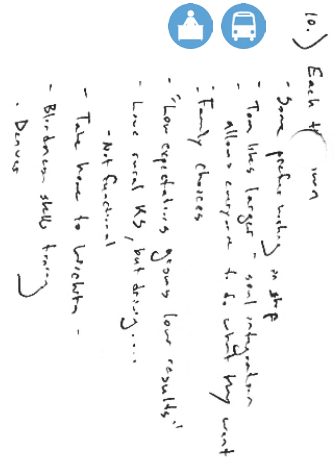 10.) Each own
- Some prefer working in shop
- Tom likes larger - integration
allows everyone to do what they want
- Family choices
- "Low expectations grows low results"
- Love rural KS, but driving....
- Not functional
- Take home to Wichita -
- Blindness skills training
- Denver